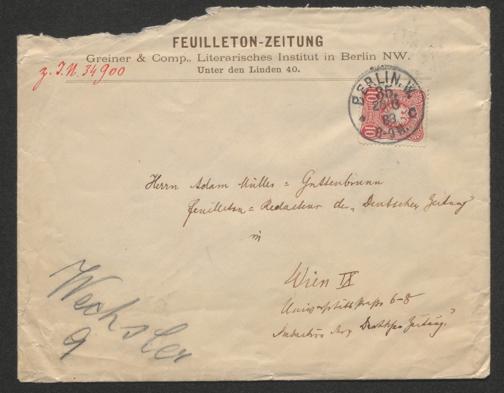 FEUILLETON-ZEITUNG
Greiner & Comp., Literarisches Institut in Berlin NW.
Unter den Linden 40.
z. I. N. 34900
BERLIN. W.
35.
83
8-9N.
10
10
Herrn Adam Müller = Guttenbrunn
Feuilleton = Redacteur der „Deutschen Zeitung"
in
Wien IX
Universitätsstrasse 6-8
Redaction der „Deutschen Zeitung."
Wechsler
9